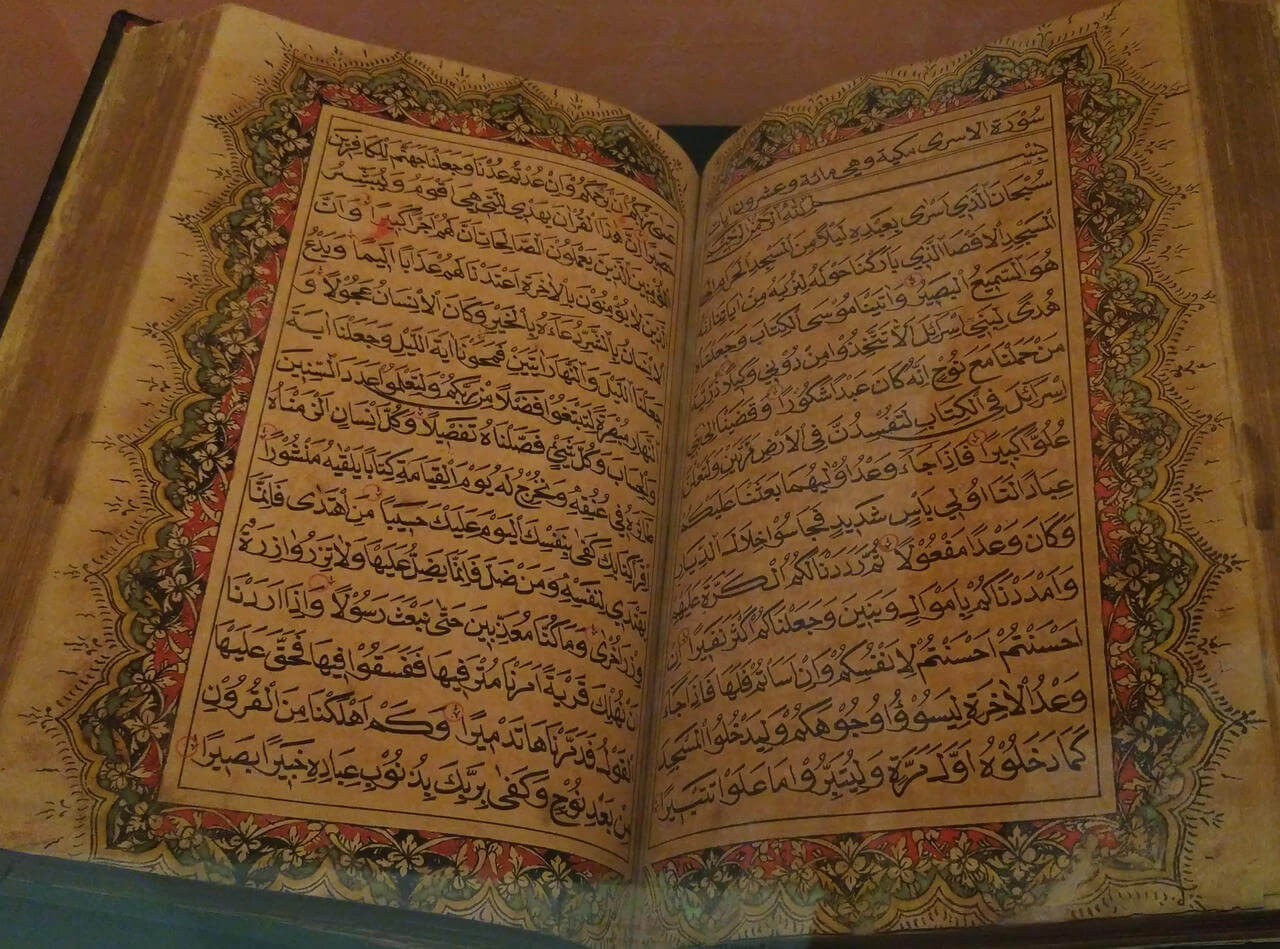 سُورَة الاسرى مكية وهي مائة وعشرون اية
بِسْمِ اللّٰهِ الرَّحْمٰنِ الرَّحِيْمِ
سُبْحَانَ الَّذِي اَسْرٰى بِعَبْدِهِ لَيْلًا مِنَ الْمَسْجِدِ الْحَرَامِ اِلَى
الْمَسْجِدِ الْاَقْصَا الَّذِي بَارَكْنَا حَوْلَهُ لِنُرِيَهُ مِنْ اٰيَاتِنَا اِنَّهُ
هُوَ السَّمِيْعُ الْبَصِيْرُ وَاٰتَيْنَا مُوْسَى الْكِتَابَ وَجَعَلْنَاهُ
هُدًى لِبَنِي اِسْرَائِلَ اَلَّا تَتَّخِذُوْا مِنْ دُوْنِي وَكِيْلًا ذُرِّيَّةَ
مَنْ حَمَلْنَا مَعَ نُوْحٍ اِنَّهُ كَانَ عَبْدًا شَكُوْرًا وَقَضَيْنَا اِلَى بَنِي
اِسْرَائِلَ فِي الْكِتَابِ لَتُفْسِدُنَّ فِي الْاَرْضِ مَرَّتَيْنِ وَلَتَعْلُنَّ
عُلُوًّا كَبِيْرًا فَاِذَا جَاءَ وَعْدُ اُوْلٰيهُمَا بَعَثْنَا عَلَيْكُمْ
عِبَادًا لَنَا اُولِي بَاْسٍ شَدِيْدٍ فَجَاسُوْا خِلَالَ الدِّيَارِ
وَكَانَ وَعْدًا مَفْعُوْلًا ثُمَّ رَدَدْنَا لَكُمُ الْكَرَّةَ عَلَيْهِمْ
وَاَمْدَدْنَاكُمْ بِاَمْوَالٍ وَبَنِيْنَ وَجَعَلْنَاكُمْ اَكْثَرَ نَفِيْرًا اِنْ
اَحْسَنْتُمْ اَحْسَنْتُمْ لِاَنْفُسِكُمْ وَاِنْ اَسَاْتُمْ فَلَهَا فَاِذَا جَاءَ
وَعْدُ الْاٰخِرَةِ لِيَسُوْؤُا وُجُوْهَكُمْ وَلِيَدْخُلُوا الْمَسْجِدَ
كَمَا دَخَلُوْهُ اَوَّلَ مَرَّةٍ وَلِيُتَبِّرُوْا مَا عَلَوْا تَتْبِيْرًا
عَسٰى رَبُّكُمْ اَنْ يَرْحَمَكُمْ وَاِنْ عُدْتُمْ عُدْنَا وَجَعَلْنَا جَهَنَّمَ لِلْكَافِرِيْنَ
حَصِيْرًا اِنَّ هٰذَا الْقُرْاٰنَ يَهْدِي لِلَّتِي هِيَ اَقْوَمُ وَيُبَشِّرُ
الْمُؤْمِنِيْنَ الَّذِيْنَ يَعْمَلُوْنَ الصَّالِحَاتِ اَنَّ لَهُمْ اَجْرًا كَبِيْرًا وَاَنَّ
الَّذِيْنَ لَا يُؤْمِنُوْنَ بِالْاٰخِرَةِ اَعْتَدْنَا لَهُمْ عَذَابًا اَلِيْمًا وَيَدْعُ
الْاِنْسَانُ بِالشَّرِّ دُعَاءَهُ بِالْخَيْرِ وَكَانَ الْاِنْسَانُ عَجُوْلًا وَ
جَعَلْنَا اللَّيْلَ وَالنَّهَارَ اٰيَتَيْنِ فَمَحَوْنَا اٰيَةَ اللَّيْلِ وَجَعَلْنَا اٰيَةَ
النَّهَارِ مُبْصِرَةً لِتَبْتَغُوْا فَضْلًا مِنْ رَبِّكُمْ وَلِتَعْلَمُوْا عَدَدَ السِّنِيْنَ
وَالْحِسَابَ وَكُلَّ شَيْءٍ فَصَّلْنَاهُ تَفْصِيْلًا وَكُلَّ اِنْسَانٍ اَلْزَمْنَاهُ
طَائِرَهُ فِي عُنُقِهِ وَنُخْرِجُ لَهُ يَوْمَ الْقِيَامَةِ كِتَابًا يَلْقٰيهُ مَنْشُوْرًا
اِقْرَاْ كِتَابَكَ كَفٰى بِنَفْسِكَ الْيَوْمَ عَلَيْكَ حَسِيْبًا مَنِ اهْتَدٰى فَاِنَّمَا
يَهْتَدِي لِنَفْسِهِ وَمَنْ ضَلَّ فَاِنَّمَا يَضِلُّ عَلَيْهَا وَلَا تَزِرُ وَازِرَةٌ
وِزْرَ اُخْرٰى وَمَا كُنَّا مُعَذِّبِيْنَ حَتّٰى نَبْعَثَ رَسُوْلًا وَاِذَا اَرَدْنَا
اَنْ نُهْلِكَ قَرْيَةً اَمَرْنَا مُتْرَفِيْهَا فَفَسَقُوْا فِيْهَا فَحَقَّ عَلَيْهَا
الْقَوْلُ فَدَمَّرْنَاهَا تَدْمِيْرًا وَكَمْ اَهْلَكْنَا مِنَ الْقُرُوْنِ
مِنْ بَعْدِ نُوْحٍ وَكَفٰى بِرَبِّكَ بِذُنُوْبِ عِبَادِهِ خَبِيْرًا بَصِيْرًا